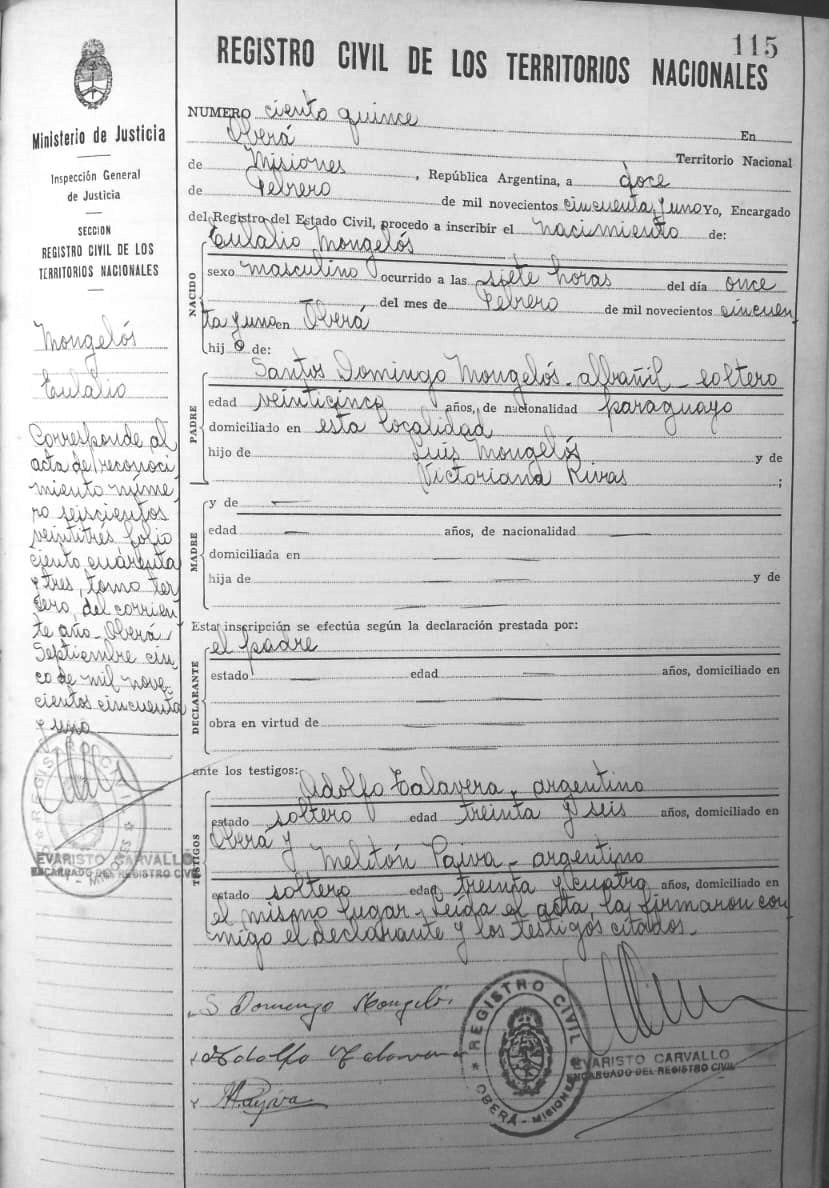 115
REGISTRO CIVIL DE LOS TERRITORIOS NACIONALES
Ministerio de Justicia
Inspección General
de Justicia
SECCION
REGISTRO CIVIL DE LOS
TERRITORIOS NACIONALES
Mongelós
Eulalio
Corresponde al
acta de reconoci
miento núme
ro seiscientos
veintitrés folio
ciento cuarenta
y tres, tomo ter
cero, del corrien
te año. Oberá,
Septiembre cin
co de mil nove-
cientos cincuenta
y uno
REGISTRO CIVIL
MISIONES
EVARISTO CARVALLO
ENCARGADO DEL REGISTRO CIVIL
NUMERO ciento quince
Oberá En
de Misiones Territorio Nacional
, República Argentina, a doce
de Febrero de mil novecientos cincuenta y uno Yo, Encargado
del Registro del Estado Civil, procedo a inscribir el nacimiento de:
NACIDO
Eulalio Mongelós
sexo masculino ocurrido a las siete horas del día once
del mes de Febrero de mil novecientos cincuen
ta y uno en Oberá
hij o de:
PADRE
Santos Domingo Mongelós - albañil - soltero
edad veinticinco años, de nacionalidad paraguayo
domiciliado en esta localidad
hijo de Luis Mongelós y de
Victoriana Rivas ;
MADRE
y de
edad años, de nacionalidad
domiciliada en
hija de y de
Esta inscripción se efectúa según la declaración prestada por:
DECLARANTE
el padre
estado edad años, domiciliado en
obra en virtud de
ante los testigos:
TESTIGOS
Adolfo Talavera, argentino
estado soltero edad treinta y seis años, domiciliado en
Oberá y
Melitón Paiva - argentino
estado soltero edad treinta y cuatro años, domiciliado en
el mismo lugar - leída el acta, la firmaron con
migo el declarante y los testigos citados.
S Domingo Mongelós
Adolfo Talavera
M Payva
REGISTRO CIVIL
OBERÁ - MISIONES
EVARISTO CARVALLO
ENCARGADO DEL REGISTRO CIVIL